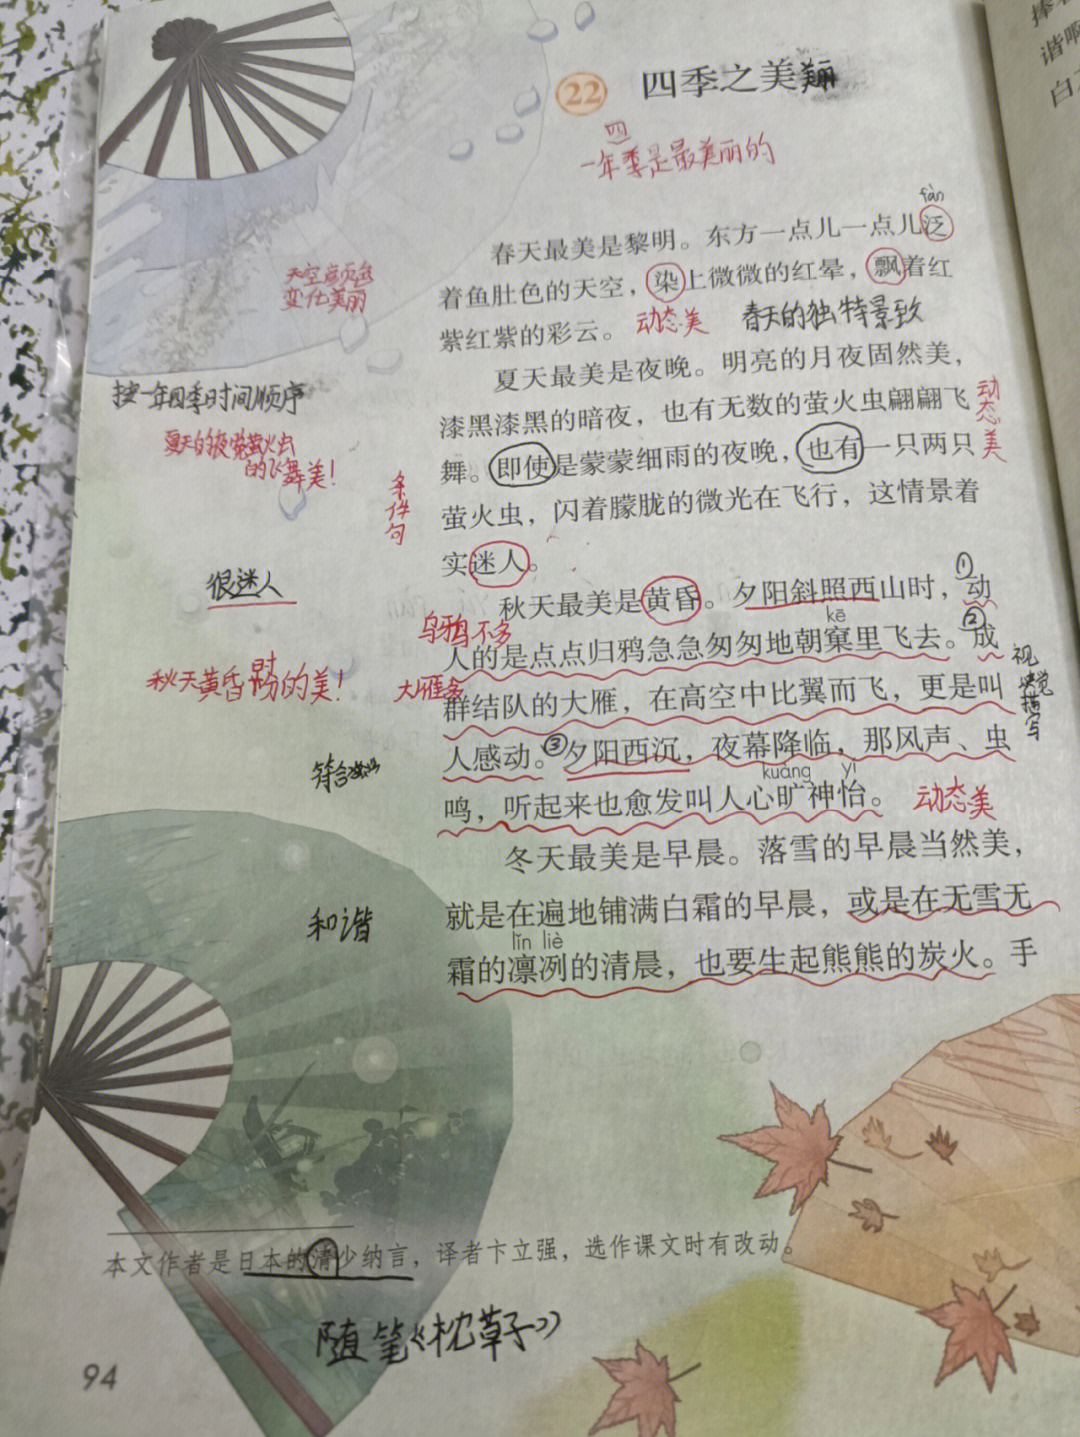 22 四季之美丽
四
一年季是最美丽的
fàn
春天最美是黎明。东方一点儿一点儿泛
着鱼肚色的天空，染上微微的红晕，飘着红
紫红紫的彩云。 动态美 春天的独特景致
天空颜色
变化美丽
夏天最美是夜晚。明亮的月夜固然美，
漆黑漆黑的暗夜，也有无数的萤火虫翩翩飞
舞。即使是蒙蒙细雨的夜晚，也有一只两只
萤火虫，闪着朦胧的微光在飞行，这情景着
实迷人。
动态美
按一年四季时间顺序
夏天的夜晚萤火虫
的飞舞美！
条件句
很迷人
秋天最美是黄昏。夕阳斜照西山时，动
kē
人的是点点归鸦急急匆匆地朝窠里飞去。成
群结队的大雁，在高空中比翼而飞，更是叫
人感动。夕阳西沉，夜幕降临，那风声、虫
kuàng yí
鸣，听起来也愈发叫人心旷神怡。 动态美
① ② ③
乌鸦不多
大雁多
秋天黄昏时的美！
视觉描写
符合
冬天最美是早晨。落雪的早晨当然美，
就是在遍地铺满白霜的早晨，或是在无雪无
lǐn liè
霜的凛冽的清晨，也要生起熊熊的炭火。手
和谐
本文作者是日本的清少纳言，译者卞立强，选作课文时有改动。
随笔《枕草子》
94
捧着
谐啊
白